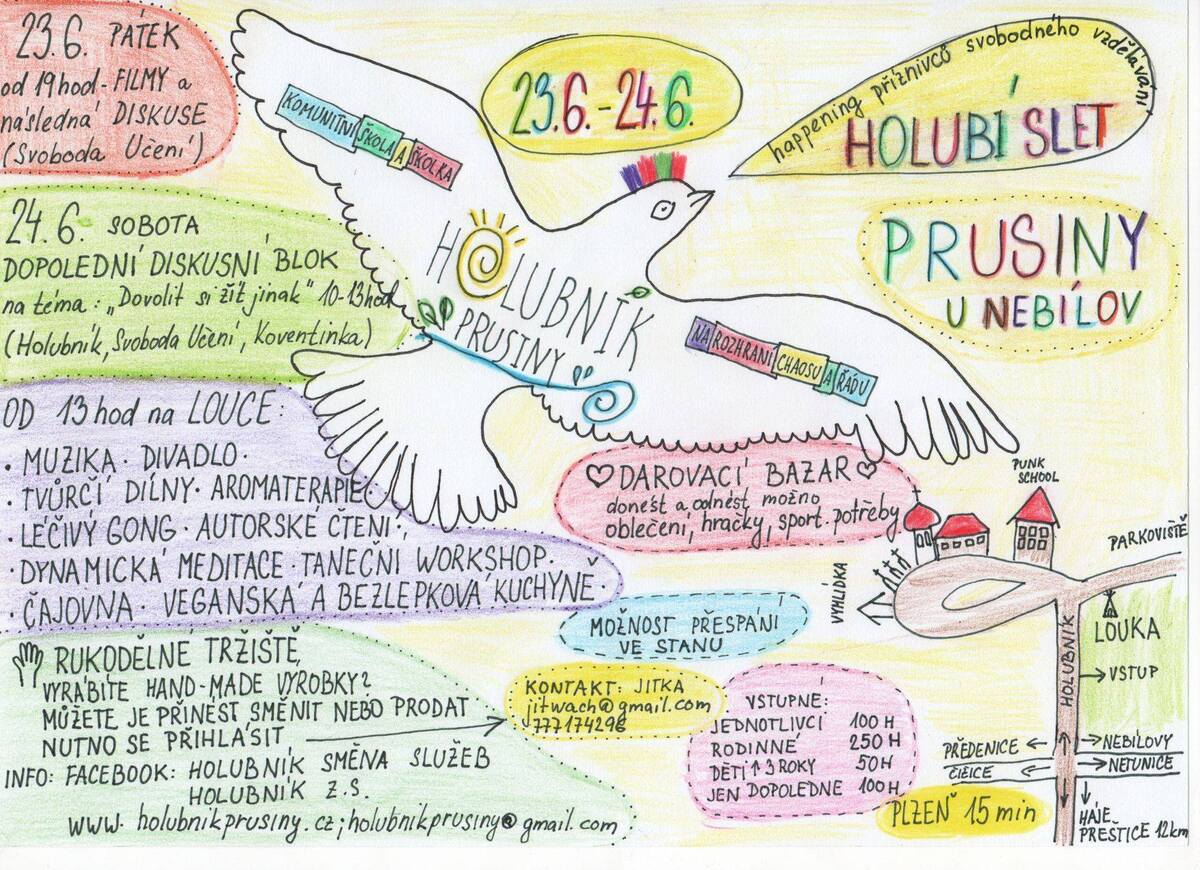 23.6. PÁTEK
od 19hod - FILMY a
následná DISKUSE
(Svoboda Učení)
KOMUNITNÍ ŠKOLA A ŠKOLKA
23.6. - 24.6.
happening příznivců svobodného vzdělávání
HOLUBÍ SLET
PRUSINY
U NEBÍLOV
24.6. SOBOTA
DOPOLEDNÍ DISKUSNÍ BLOK
na téma: „Dovolit si žít jinak" 10-13hod
(Holubník, Svoboda Učení, Koventinka)
HOLUBNÍK
PRUSINY
NA ROZHRANÍ CHAOSU A ŘÁDU
OD 13hod na LOUCE:
• MUZIKA • DIVADLO •
• TVŮRČÍ DÍLNY • AROMATERAPIE
• LÉČIVÝ GONG • AUTORSKÉ ČTENÍ •
• DYNAMICKÁ MEDITACE • TANEČNÍ WORKSHOP •
• ČAJOVNA • VEGANSKÁ A BEZLEPKOVÁ KUCHYNĚ •
♡ DAROVACÍ BAZAR ♡
donést a odnést možno
oblečení, hračky, sport. potřeby
MOŽNOST PŘESPÁNÍ
VE STANU
RUKODĚLNÉ TRŽIŠTĚ
VYRÁBÍTE HAND-MADE VÝROBKY?
MŮŽETE JE PŘINÉST SMĚNIT NEBO PRODAT
NUTNO SE PŘIHLÁSIT
KONTAKT: JITKA
jitwach@gmail.com
777174296
INFO: FACEBOOK: HOLUBNÍK SMĚNA SLUŽEB
HOLUBNÍK Z.S.
WWW. holubnikprusiny.cz; holubnikprusiny@gmail.com
VSTUPNÉ:
JEDNOTLIVCI 100 H
RODINNÉ 250 H
DĚTI ↑ 3 ROKY 50 H
JEN DOPOLEDNE 100 H
PUNK
SCHOOL
PARKOVIŠTĚ
VYHLÍDKA
HOLUBNÍK
LOUKA
→ VSTUP
PŘEDENICE ←
→ NEBÍLOVY
ČIŽICE ←
→ NETUNICE
PLZEŇ 15 min
HÁJE
PŘEŠTICE 12km